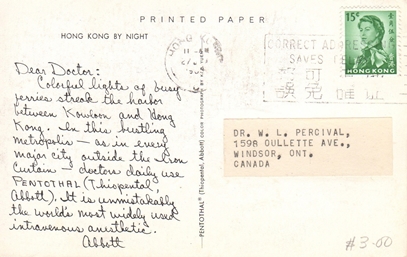 PRINTED PAPER
HONG KONG BY NIGHT
Dear Doctor:
Colorful lights of busy
ferries streak the harbor
between Kowloon and Hong
Kong. In this bustling
metropolis — as in every
major city outside the Iron
Curtain — doctors daily use
PENTOTHAL (Thiopental,
Abbott). It is unmistakably
the world's most widely used
intravenous anesthetic.
Abbott
PENTOTHAL® (Thiopental, Abbott) COLOR PHOTOGRAPH
HONG KONG
11
CORRECT ADDRESS
SAVES
15¢
HONG KONG
DR. W. L. PERCIVAL,
1598 OULLETTE AVE.,
WINDSOR, ONT.
CANADA
#3-00